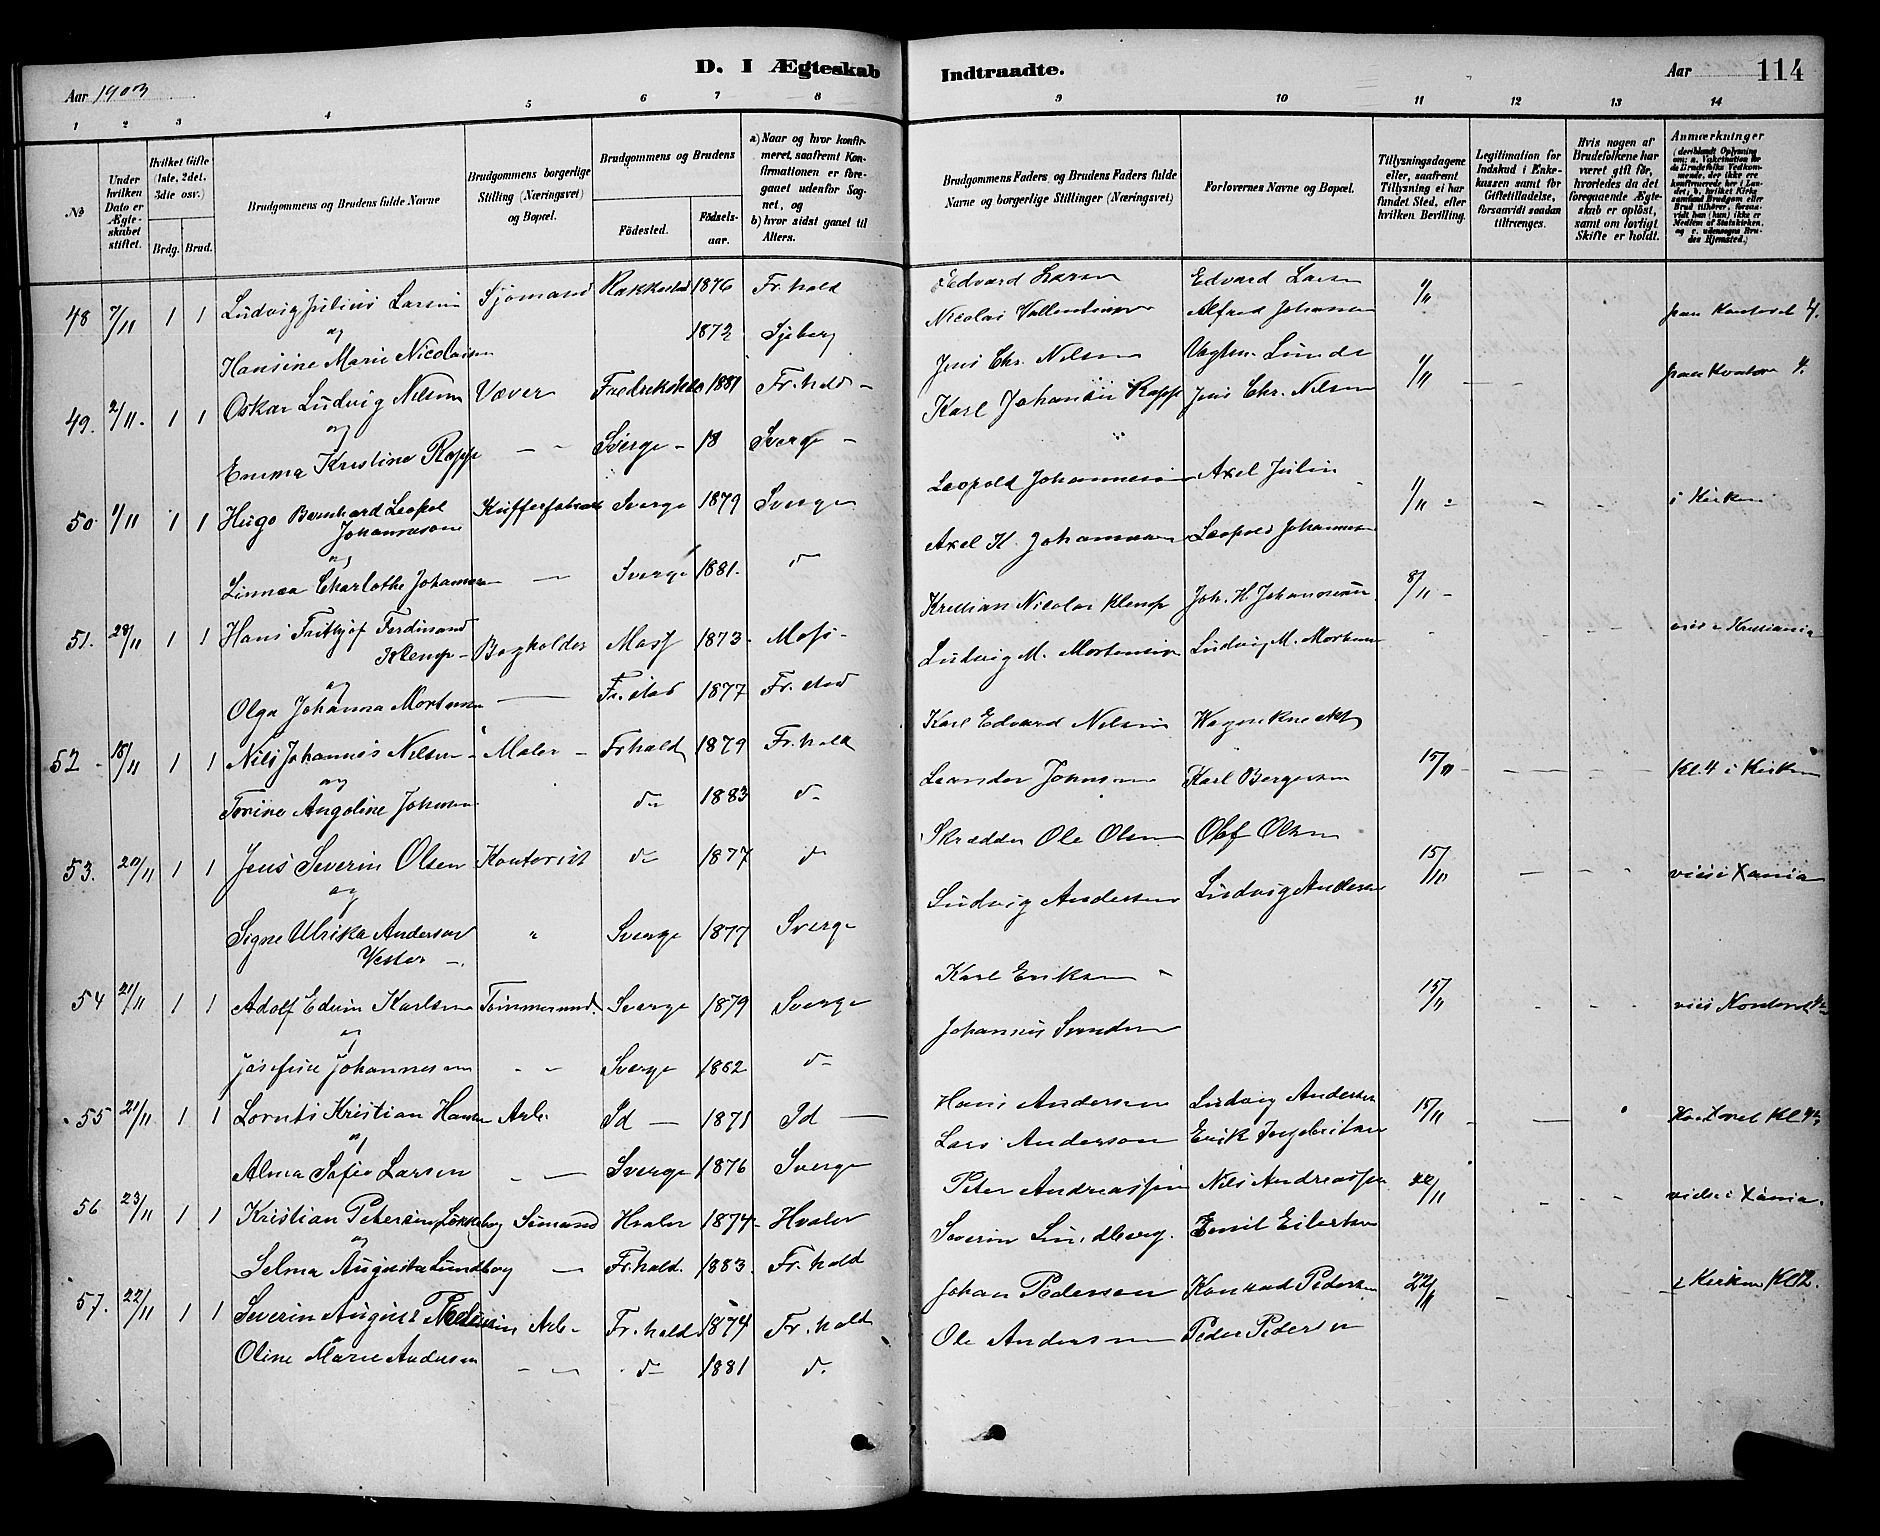 D. I Ægteskab Indtraadte.
Aar 1903
Aar 114
1 2 3 4 5 6 7 8 9 10 11 12 13 14
No
Under hvilken Dato er Ægteskabet stiftet.
Hvilket Gifte (1ste, 2det, 3die osv.)
Brdg. Brud.
Brudgommens og Brudens fulde Navne
Brudgommens borgerlige Stilling (Næringsvei) og Bopæl.
Brudgommens og Brudens
Födested.
Födselsaar.
a) Naar og hvor konfirmeret, saafremt Konfirmationen er foregaaet udenfor Sognet, og
b) hvor sidst gaaet til Alters.
Brudgommens Faders, og Brudens Faders fulde Navne og borgerlige Stillinger (Næringsvei)
Forlovernes Navne og Bopæl.
Tillysningsdagene eller, saafremt Tillysning ei har fundet Sted, efter hvilken Bevilling.
Legitimation for Indskud i Enkekassen samt for Giftetilladelse, forsaavidt saadan tiltrænges.
Hvis nogen af Brudefolkene har været gift för, hvorledes da det foregaaende Ægteskab er oplöst, samt om lovligt Skifte er holdt.
Anmærkninger
48 7/11 1 1 Ludvig Julius Larsen Sjömand Rakkestad 1876 Fr.hald Edvard Larsen Edvard Larsen
og 1872 Nicolai Alfred Johansen
Hansine Marie Nicolaisen
49. 2/11 1 1 Oskar Ludvig Nilsen Væver Fredrikshald 1881 Fr.hald Jens Chr. Nilsen
og Karl Rapp Jens Chr. Nilsen
Emma Kristine Rapp Sverge 18 Sverge
50 1/11 1 1 Hugo Bernhard Leopol Sverge 1879 Sverge Leopold Johannesen Axel Julin i Kirken
Johannesson
og Axel Leopold Johannesen
Linnea Charlothe Johansen Sverge 1881. d
51. 28/11 1 1 Hans Frithjof Ferdinand Bogholder Moss 1873 Moss Kristian Nicolai Klemp Joh. H. Johannesen 8/11 vies i Kristiania
Klemp
og Ludvig M. Mortensen Ludvig M. Mortensen
Olga Johanna Mortensen Fr.stad 1877 Fr.stad
52 18/11 1 1 Nils Johannes Nilsen Maler Frhald 1879 Fr.hald Karl Edvard Nilsen 15/11 Kl. 4 i Kirken
og Leander Johnsen Karl Bergersen
Angoline Johnsen do 1883 do
53. 20/11 1 1 Jens Severin Olsen Kontorist do 1877 d Skrædder Ole Olsen Olaf Olsen 15/11 vies i Xania
og Ludvig Andersen Ludvig Andersen
Signe Ulrika Anderson " Sverge 1877 Sverge
Vester
54 21/11 1 1 Adolf Edvin Karlsen Tömmermd. Sverge 1879 Sverge Karl Eriksen 15/11
og Johannes Svendsen
Josefine Johannesen Sverge 1862 do
55 21/11 1 1 Lornts Kristian Hansen Arb. Id 1871 Id Hans Andersen Ludvig Andersen 15/11 Kontoret Kl 4½
og Lars Anderson Erik Ingebritsen
Alma Sofie Larsen Sverge 1876 Sverge
56 23/11 1 1 Kristian Petersen Lökkeberg Sömand Hvaler 1874 Hvaler Peter Andreassen Nils Andreassen 22/11 vies i Xania.
og Severin Lundberg. Emil Eilertsen
Selma Augusta Lundberg Fr.hald. 1883. Fr.hald
57. 22/11 1 1 Severin August Pedersen Arb. Fr.hald 1874 Fr.hald Johan Pederson Konrad Pedersen 22/11 i Kirken Kl 12.
Ole Andersen Peder Pedersen
Oline Marie Andersen do 1881 d.